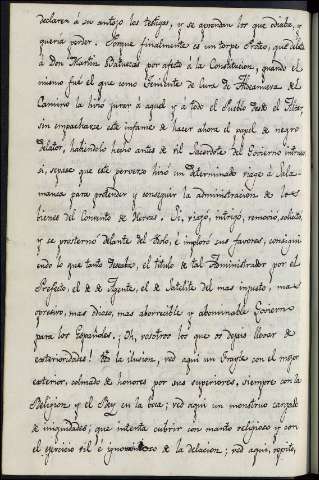 declaren á su antojo los testigos, y se aprendan los que odiaba, y
queria perder. Porque finalmente es un torpe Ateo, que delata
á Don Martin Batuecas por afecto á la Constitucion, quando él
mismo fué el que como Teniente de Cura de Aldeanueva del
Camino la hizo jurar á aquel y á todo el Pueblo desde el Altar,
sin empacharse este infame de hacer ahora el papel de negro
delator, habiendolo hecho antes de vil Sacerdote del Gobierno intruso
sí, sepase que este perverso hizo un determinado viage á Sala-
manca para pretender y conseguir la administracion de los
bienes del Convento de Hervas. Si, viajó, intrigó, removió, solicitó,
y se prosternó delante del Idolo, é imploró sus favores, consiguien
endo lo que tanto deseaba, el titulo de tal Administrador por el
Prefecto, el de Agente, el de Satelite del mas injusto, mas
opresivo, mas odioso, mas aborrecible y abominable Gobierno
para los Españoles. ¡Oh, vosotros los que os dejais llevar de
exterioridades! la ilusion, ved aqui un Frayle con el mejor
exterior, colmado de honores por sus superiores, siempre con la
Religion y el Rey en la boca; ved aqui un monstruo cargado
de iniquidades, que intenta cubrir con manto religioso y con
el ejercicio vil é ignominioso de la delacion; ved aqui, repito,